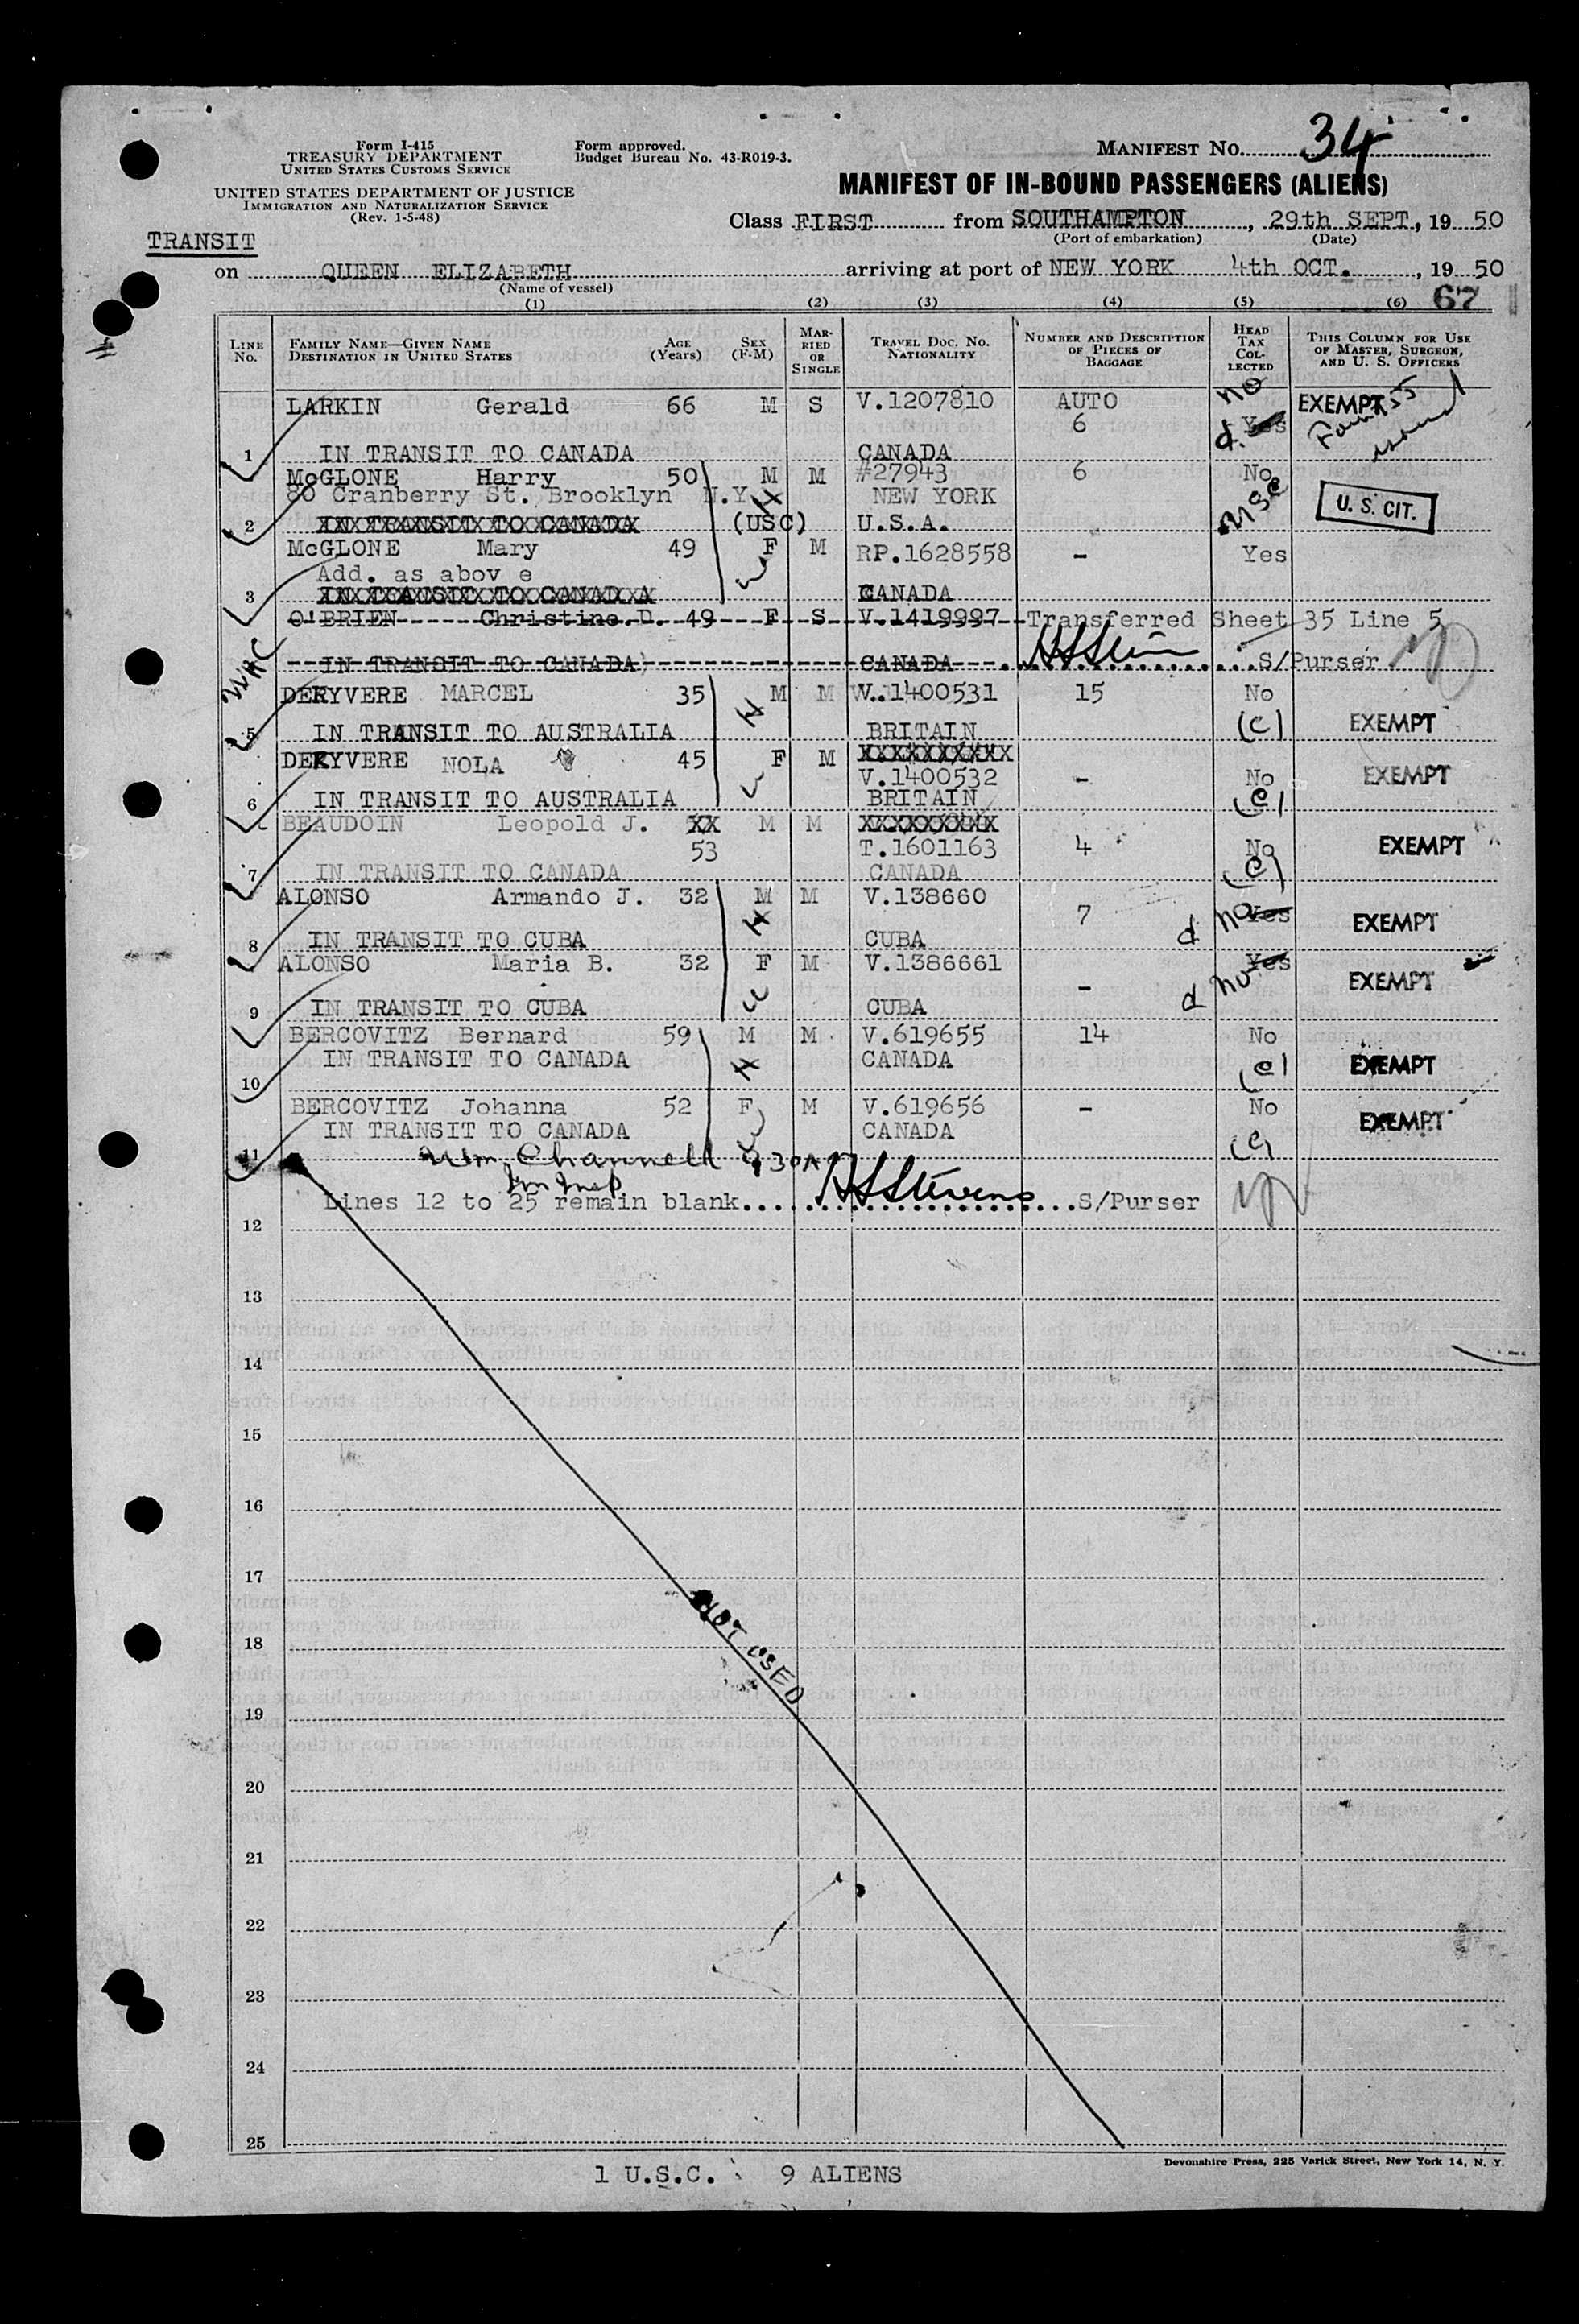 Form I-415
TREASURY DEPARTMENT
UNITED STATES CUSTOMS SERVICE
Form approved.
Budget Bureau No. 43-R019-3.
MANIFEST NO. 34
UNITED STATES DEPARTMENT OF JUSTICE
IMMIGRATION AND NATURALIZATION SERVICE
(Rev. 1-5-48)
MANIFEST OF IN-BOUND PASSENGERS (ALIENS)
Class FIRST from SOUTHAMPTON, 29th SEPT, 19 50
(Port of embarkation) (Date)
TRANSIT
on QUEEN ELIZABETH arriving at port of NEW YORK 4th OCT., 19 50
(Name of vessel)
(1) (2) (3) (4) (5) (6) 67
LINE No.
FAMILY NAME—GIVEN NAME
DESTINATION IN UNITED STATES
AGE (Years)
SEX (F-M)
MARRIED OR SINGLE
TRAVEL DOC. NO. NATIONALITY
NUMBER AND DESCRIPTION OF PIECES OF BAGGAGE
HEAD TAX COLLECTED
THIS COLUMN FOR USE OF MASTER, SURGEON, AND U. S. OFFICERS
LARKIN Gerald 66 M S V.1207810 AUTO no EXEMPT
6 d. Yes Form 255 issued
1 IN TRANSIT TO CANADA CANADA
McGLONE Harry 50 M M #27943 6 No
80 Cranberry St. Brooklyn N.Y. NEW YORK USC U. S. CIT.
2 IN TRANSIT TO CANADA (USC) U.S.A.
McGLONE Mary 49 F M RP.1628558 - Yes
Add. as abov e
3 IN TRANSIT TO CANADA CANADA
O'BRIEN Christine.D. 49 F S V.1419997 Transferred Sheet 35 Line 5
IN TRANSIT TO CANADA CANADA S/Purser
DEKYVERE MARCEL 35 M M V.1400531 15 No
5 IN TRANSIT TO AUSTRALIA BRITAIN (c) EXEMPT
DEKYVERE NOLA 45 F M XXXXXXXXXX
V.1400532 - No EXEMPT
6 IN TRANSIT TO AUSTRALIA BRITAIN (c)
BEAUDOIN Leopold J. XX M M XXXXXXXXX
53 T.1601163 4 No EXEMPT
7 IN TRANSIT TO CANADA CANADA (c)
ALONSO Armando J. 32 M M V.138660
7 d no Yes EXEMPT
8 IN TRANSIT TO CUBA CUBA
ALONSO Maria B. 32 F M V.1386661 Yes
- d no EXEMPT
9 IN TRANSIT TO CUBA CUBA
BERCOVITZ Bernard 59 M M V.619655 14 No
IN TRANSIT TO CANADA CANADA (c) EXEMPT
10
BERCOVITZ Johanna 52 F M V.619656 - No EXEMPT
IN TRANSIT TO CANADA CANADA (c)
11 Wm. Channell 9 30A
Imm Insp
Lines 12 to 25 remain blank.... HSStevens ....S/Purser
12
13
14
15
16
17
NOT USED
18
19
20
21
22
23
24
25
Devonshire Press, 225 Varick Street, New York 14, N. Y.
1 U.S.C. 9 ALIENS